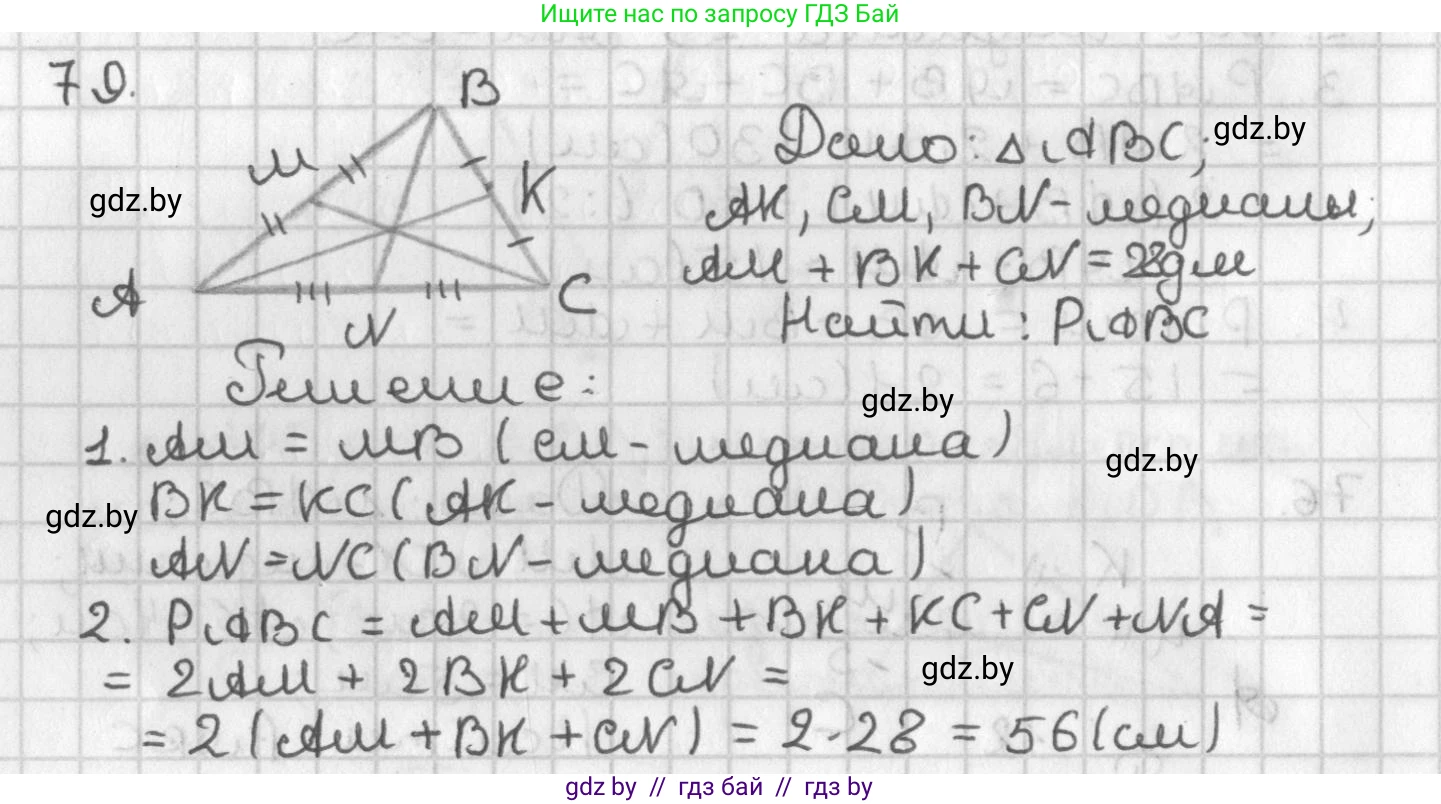 Ищите нас по запросу ГДЗ Бай
79.
B
M
K
A
N
C
gdz.by
Дано: △ABC; gdz.by
AK, CM, BN - медианы;
AM + BK + CN = 28дм
Найти: PABC
Решение:
gdz.by
1. AM = MB (CM - медиана)
gdz.by
BK = KC (AK - медиана)
gdz.by
AN = NC (BN - медиана)
2. PABC = AM + MB + BK + KC + CN + NA =
= 2AM + 2BK + 2CN =
gdz.by
= 2 (AM + BK + CN) = 2·28 = 56 (см)
gdz.by // гдз бай // гдз by